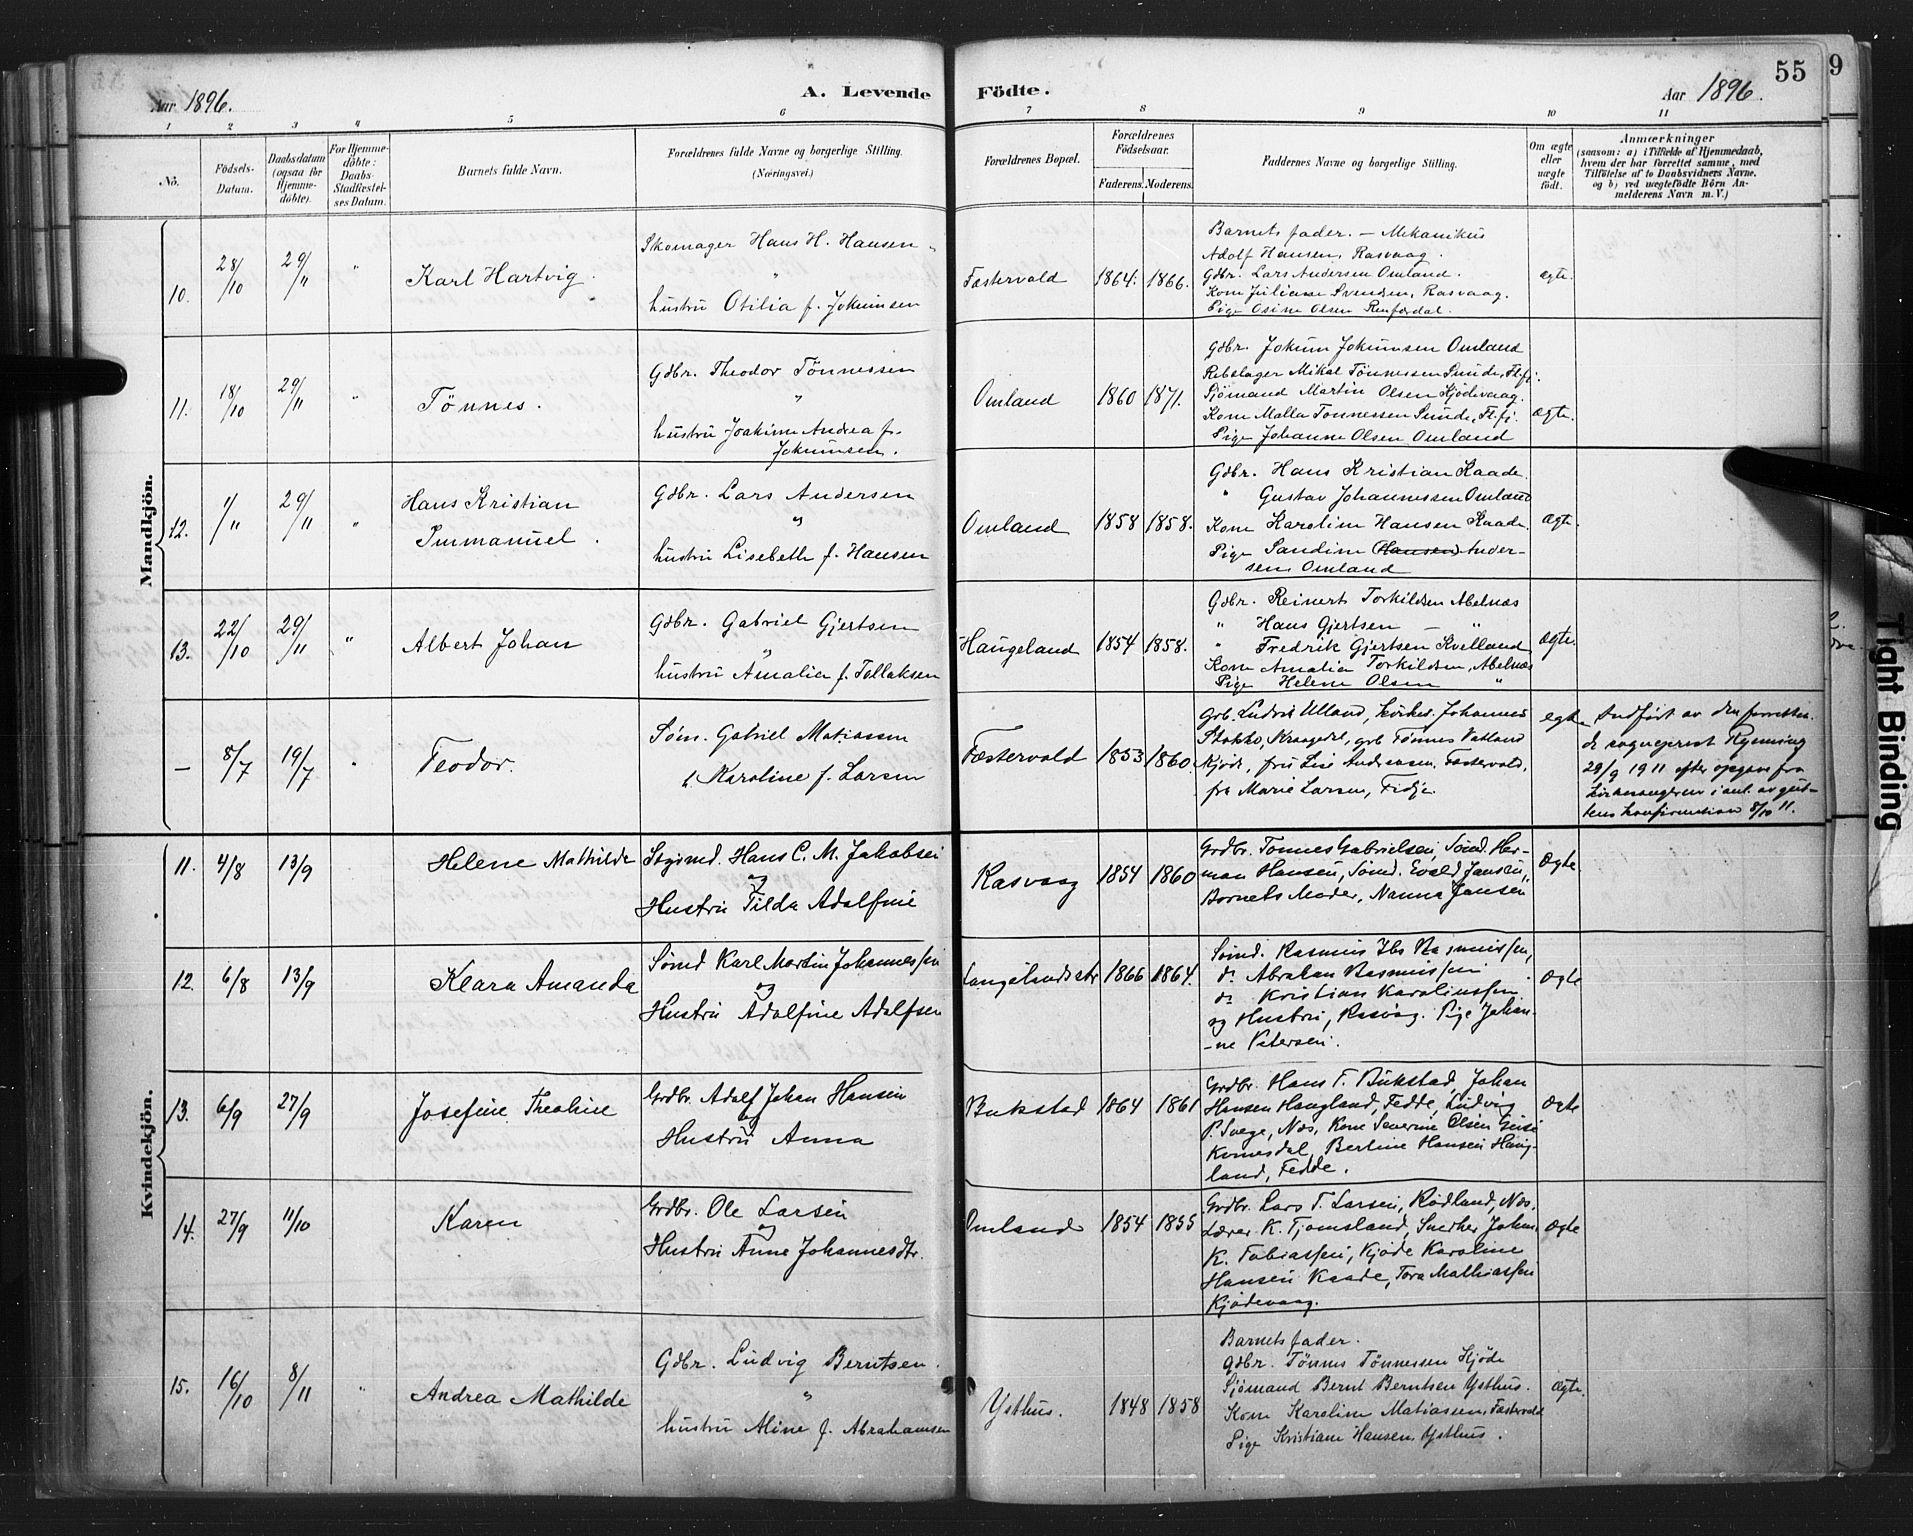 Aar 1896.
A. Levende
Födte.
Aar 1896.
55
9
1 2 3 4 5 6 7 8 9 10 11
No.
Födsels-
Datum.
Daabsdatum
(ogsaa for
Hjemme-
döbte).
For Hjemme-
döbte:
Daabs-
Stadfæstel-
ses Datum.
Barnets fulde Navn.
Forældrenes fulde Navne og borgerlige Stilling.
(Næringsvei.)
Forældrenes Bopæl.
Forældrenes
Födselsaar.
Faderens. Moderens.
Faddernes Navne og borgerlige Stilling.
Om ægte
eller
uægte
födt.
Anmærkninger
(saasom: a) i Tilfælde af Hjemmedaab,
hvem der har forrettet samme, med
Tilföielse af to Daabsvidners Navne.
og b) ved uægtefödte Börn An-
melderens Navn m. V.)
Mandkjön.
10. 28/10 29/11 " Karl Hartvig.
Skomager Hans H. Hansen
"
hustru Otilia f. Jokumsen
Fæstervold 1864. 1866.
Barnets fader. — Mekanikus
Adolf Hansen, Rasvaag.
Gdbr. Lars Andersen Omland.
Kone Juliane Svendsen, Rasvaag.
Pige Osine Olsen
ægte.
11. 18/10 29/11 " Tönnes.
Gdbr. Theodor Tönnessen
"
hustru Joakime Andrea f.
Jokumsen.
Omland 1860 1871.
Gdbr. Jokum Jokumsen Omland
Rebslager Mikal Tönnessen Sunde, Fl.fj.
Sjömand Martin Olsen Kjödevaag.
Kone Malla Tönnessen Sunde, Fl.fj.
Pige Johanne Olsen Omland
ægte.
12. 1/11 29/11 " Hans Kristian
Immanuel.
Gdbr. Lars Andersen
"
hustru Lisebeth f. Hansen
Omland 1858 1858.
Gdbr. Hans Kristian Kaade.
" Gustav Johannessen Omland
Kone Karoline Hansen Kaade.
Pige Sandine (Hansen) Ander-
sen Omland
ægte.
13. 22/10 29/11 " Albert Johan
Gdbr. Gabriel Gjertsen
"
hustru Amalia f. Tollaksen
Haugeland 1854 1858.
Gdbr. Reinert Torkildsen Abelnæs
" Hans Gjertsen — "
" Fredrik Gjertsen Kvelland
Kone Amalia Torkildsen, Abelnæs
Pige Helene Olsen "
ægte.
— 8/7 19/7 Teodor.
Søm. Gabriel Matiassen
h. Karoline f. Larsen
Fæstervold 1853 1860.
Grb. Ludvik Ulland, kirkes. Johannes
Stakko, Kraagedel, grb Tønnes Vatland
Kjøde, fru Lise Andreasen, Fæstervold,
fru Marie Larsen, Fidje.
egte
Indført av den forretten-
de sogneprest Rynning
28/9 1911 efter opgave fra
kirkesangeren i anl. av gut-
tens konfirmation 8/10 11.
Kvindekjön.
11. 4/8 13/9 Helene Mathilde
Styrmd. Hans C. M. Jakobsen
og
Hustru Tilda Adolfine
Rasvaag 1854 1860
Grdbr. Tønnes Gabrielsen, Sømd. Her-
man Hansen, Sømd. Evald Jansen,
Barnets Moder, Nanna Jansen
Ægte
12. 6/8 13/9 Klara Amanda
Sømd Karl Martin Johannessen
og
Hustru Adolfine Adolfsen
1866 1864.
Sømd. Rasmus Ibs Rasmussen,
do Abraham Rasmussen
do Kristian Karoliussen
og Hustru, Rasvåg. Pige Johan-
ne Petersen.
Ægte
13. 6/9 27/9 Josefine Theoline
Grdbr. Adolf Johan Hansen
og
Hustru Anna
Bukstad 1864 1861
Grdbr. Hans T. Bukstad, Johan
Hansen Haugland, Fedde, Ludvig
P. Svege, Næs, Kone Severine Olsen
Kvinesdal, Bertine Hansen Haug-
land, Fedde.
Ægte
14. 27/9 11/10 Karen
Grdbr. Ole Larsen
og
Hustru Anne Johannesdtr.
Omland 1854 1855
Grdbr. Lars T. Larsen, Rødland, Næs.
Lærer K. Tjomsland, Snedker Johan
K. Tobiassen, Kjøde Karoline
Hansen Kaade, Tora Mathiassen
Kjødevaag.
Ægte
15. 16/10 8/11 " Andrea Mathilde
Gdbr. Ludvig Berntsen.
"
hustru Aline f. Abrahamsen
Ysthus. 1848 1858
Barnets fader.
Gdbr. Tönnes Tönnessen Kjöde
Sjömand Bernt Berntsen Ysthus.
Kone Karoline Matiassen, Fæstervold
Pige Kristiane Hansen, Ysthus.
Ægte.
Tight Binding